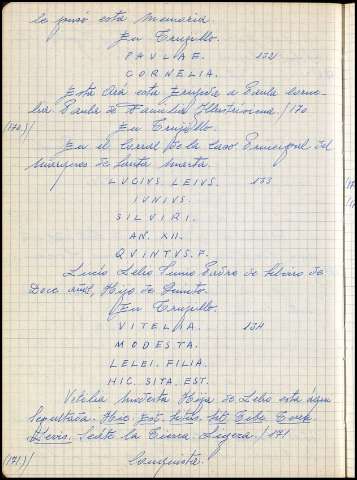 le puso esta memoria.
En Trujillo.
PAULAE. 132
CORNELIA.
Está Ara esta erigida a Paula Corne-
lia. Paula de Familia Illustrissima./170
(170.)/ En Trujillo.
En el Corral de la Casa Principal del
Marques de Santa Marta.
LUCIUS. LEIUS. 133
IUNIUS.
SILUIRI.
AN. XII.
QUINTUS. F.
Lucio Lelio Junio Padro de Silviro de
Doce años, Hijo de Quinto.
(En Trujillo.
VITELIA. 134
MODESTA.
LELEI. FILIA.
HIC. SITA. EST.
Vitelia Modesta Hija de Lelio está aqui
sepultada. Hic Est. Sita. Sit Tibi Terra
Levis. Seate la Tierra Ligera./171
(171)/ Conquista.